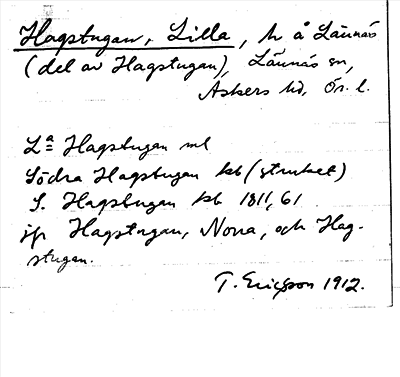 Hagstugan, Lilla, h å Lännäs
(del av Hagstugan), Lännäs sn,
Askers hd, Ör. l.
La Hagstugan ml
Södra Hagstugan kb (struket)
S. Hagstugan kb 1811, 61
jfr Hagstugan, Norra, och Hag-
stugan.
T. Ericsson 1912.